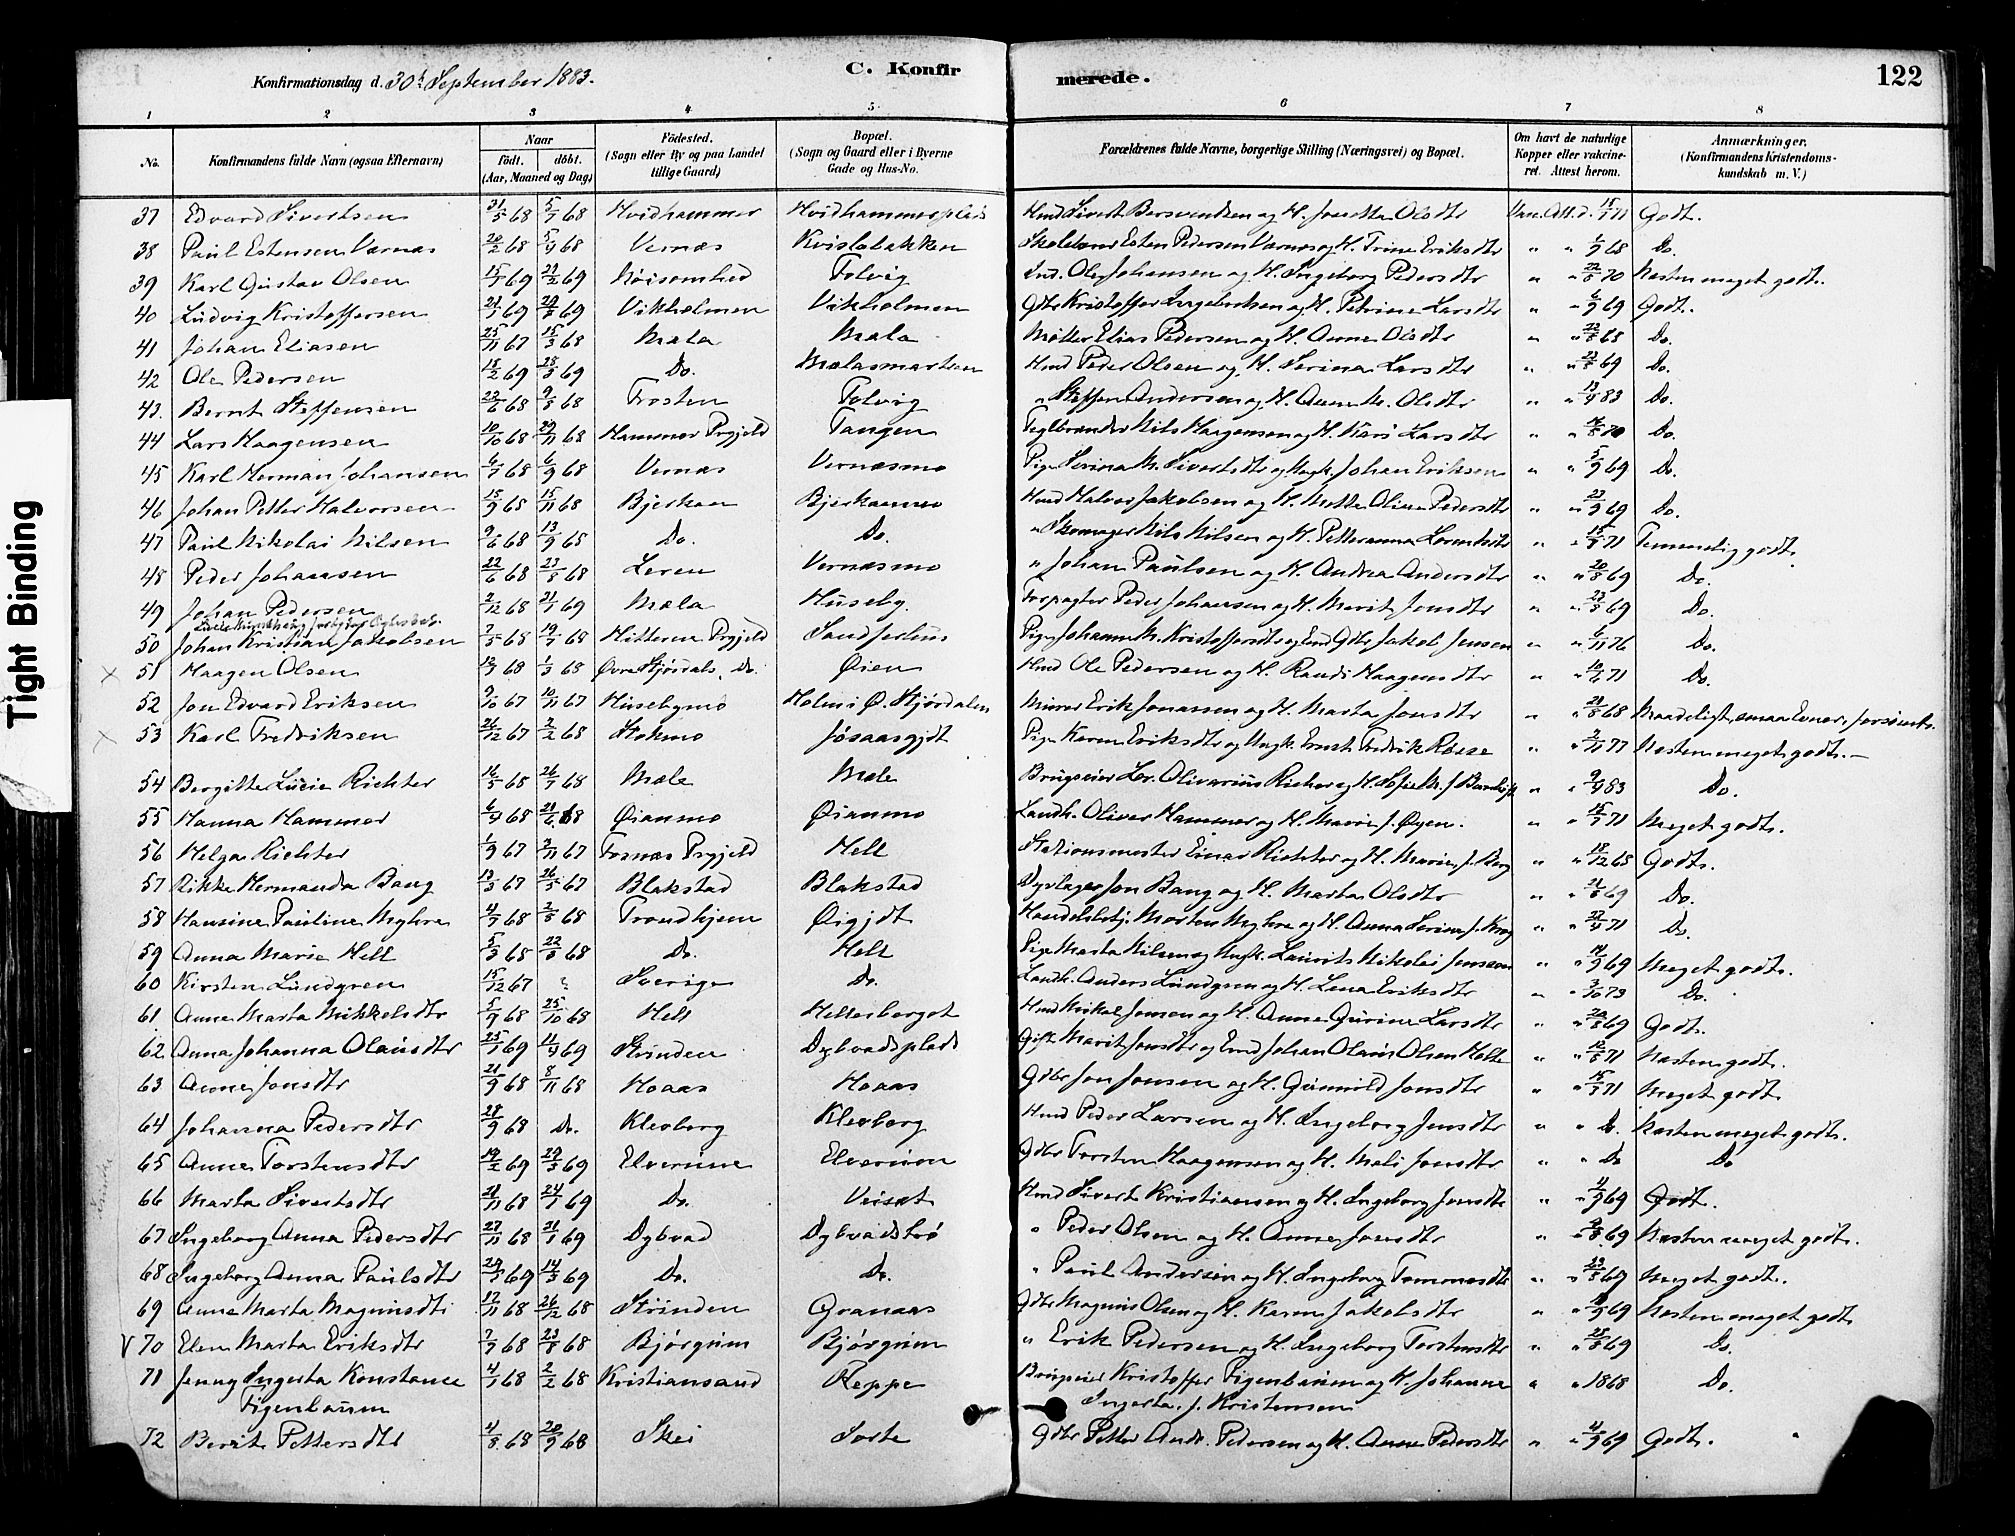 Konfirmationsdag d. 30t September 1883. C. Konfir merede. 122
1 2 3 4 5 6 7 8
No. Konfirmandens fulde Navn (ogsaa Efternavn) Naar födt. döbt. (Aar, Maaned og Dag) Födested. (Sogn eller By og paa Landet tillige Gaard) Bopæl. (Sogn og Gaard eller i Byerne Gade og Hus-No. Forældrenes fulde Navne, borgerlige Stilling (Næringsvei) og Bopæl. Om havt de naturlige Kopper eller vakcineret. Attest herom. Anmærkninger. (Konfirmandens Kristendomskundskab m. V.)
Tight Binding
37 Edvard Sivertsen 31/5 68 5/7 68 Hvidhammer Hvidhammerplads Hmd Sivert Bersvendsen og H. Olsdtr Vac. Att. d. 15/7 71 Godt.
38 Paul Estensen Værnæs 20/2 68 5/4 68 Vernæs Kvislabakken Skolelærer Esten Pedersen Værnæs og H. Trine Eriksdtr " " 1/9 68 Do.
39 Karl Gustav Olsen 15/1 69 23/2 69 Nöisomhed Folvig Ind. Ole Johansen og H. Ingeborg Pedersdtr " " 22/8 70 Næsten meget godt.
40 Ludvig Kristoffersen 21/1 69 29/3 69 Vikholmen Vikholmen Gbr Kristoffer Ingebrektsen og H. Petrine Larsdtr " " 6/9 69 Godt.
41 Johan Eliasen 25/11 67 15/3 68 Mæla Mæla Møller Elias Pedersen og H. Anne Olsdtr " " 22/8 68 Do.
42 Ole Pedersen 18/2 69 28/3 69 Do. Mælasmarken Hmd Peder Olsen og H. Serina Larsdtr " " 22/8 69 Do.
43. Bernt Steffensen 22/6 68 9/8 68 Frosten Folvig " Steffen Andersen og H. Anne M. Olsdtr " " 13/4 83 Do.
44 Lars Haagensen 10/10 68 29/11 68 Hammer Prgjeld Tangen Teglbrænder Nils Haagensen og H. Kari Larsdtr " " 14/8 70 Do.
45 Karl Herman Johansen 6/7 68 6/9 68 Vernæs Vernæsmo Pige Serina M. Sivertsdtr og Ungk. Johan Eriksen " " 5/9 69 Do.
46 Johan Petter Halvorsen 15/9 68 15/11 68 Bjerkan Bjerkanmo Hmd Halvor Jakobsen og H. Mette Oline Pedersdtr " " 23/9 69 Do.
47 Paul Nikolai Nilsen 9/6 68 13/9 68 Do. Do. " Skomager Nils Nilsen og H. Petteranna Lorentsdtr " " 15/7 71 Temmelig godt.
48 Peder Johansen 22/6 68 23/8 68 Leren Vernæsmo " Johan Paulsen og H. Andrea Andersdtr " " 20/8 69 Do.
49 Johan Pedersen 2/12 68 21/1 69 Mæla Huseby Forpagter Peder Johansen og H. Marit Jonsdtr " " 22/8 69 Do.
50 Johan Kristian Jakobsen 7/5 68 19/7 68 Hitteren Prgjeld Sandfærhus Pige Johanna M. Kristoffersdtr og Gbr Jakob Jensen " " 6/11 76 Do.
51 Haagen Olsen 12/1 68 1/3 68 Øvre Stjørdals. Do. Øien Hmd Ole Pedersen og H. Randi Haagensdtr " " 10/6 71 Do.
52 Jon Edvard Eriksen 9/10 67 10/11 67 Husebymo Holm i Ø. Stjørdalen Murer Erik Jonassen og H. Marta Jonsdtr " " 21/8 68 Maadeligt, smaa Evner,
53 Karl Fredriksen 26/12 67 2/2 68 Stokmo Jøsaasgjdt Pige Karen Eriksdtr og Ungk. Ernst Fredrik Røese " " 2/11 77 Næsten meget godt.
54 Bergitte Lucie Richter 16/5 68 26/7 68 Mæle Mæle Brugseier Lor. Olivarius Richter og H. Sofie M. f. " " 9/4 83 Do.
55 Hanna Hammer 6/4 68 21/6 68 Øianmo Øianmo Landh. Oliver Hammer og H. Marie f. Øyen. " " 15/7 71 Meget godt.
56 Helga Richter 1/9 67 2/11 67 Fosnæs Prgjeld Hell Stationsmester Einar Richter og H. Marie f. Berg " " 18/12 68 Godt.
57 Rikke Hermanda Bang 13/3 67 26/5 67 Blakstad Blakstad Dyrlæge Jon Bang og H. Marta Olsdtr " " 21/8 69 Do.
58 Hansine Pauline Myhre 4/7 68 2/8 68 Trondhjem Øigjdt Handelsbetj. Morten Myhre og H. Anna Serine f. Krog " " 22/4 71 Do.
59 Anna Marie Hell 5/3 68 22/3 68 Do. Hell Pige Marta Nilsen og Ungk. Laurits Nikolai Jensen " " 14/9 69 Meget godt.
60 Kirsten Lundgren 15/12 67 ? Sverige Do. Landh. Anders Lundgren og H. Lena Eriksdtr " " 3/10 73 Do.
61 Anne Marta Mikkelsdtr 5/9 68 25/10 68 Hell Hellesberget Hmd Mikal Jonsen og H. Anne Gurine Larsdtr " " 20/8 69 Godt.
62 Anna Johanna Olausdtr 25/1 69 11/4 69 Strinden Dybvadsplads Gift Marit Jonsdtr og Emd Johan Olaus Olsen Holte " " 12/8 71 Næsten godt.
63 Anne Jonsdtr 21/9 68 8/11 68 Hoaas Hoaas Gbr Jon Jonsen og H. Gunnild Jonsdtr " " 15/7 71 Meget godt.
64 Johanna Pedersdtr 28/9 68 Do. Klevberg Klevberg Hmd Peder Larsen og H. Ingeborg Jonsdtr " " Do. Næsten meget godt.
65 Anne Torstensdtr 19/2 69 29/3 69 Elverum Elverum Gbr Torsten Haagensen og H. Mali Jonsdtr " " Do Do
66 Marta Sivertsdtr 21/11 68 24/1 69 Do. Veiset Hmd Sivert Kristiansen og H. Ingeborg Jonsdtr " " 4/9 69 Godt.
67 Ingeborg Anna Pedersdtr 27/11 68 21/1 69 Dybvad Dybvadstrø " Peder Olsen og H. Anne Jonsdtr " " 2/8 69 Næsten meget godt.
68 Ingeborg Anna Paulsdtr 29/1 69 14/3 69 Do. Do. " Paul Andersen og H. Ingeborg Tommasdtr " " 23/8 69 Meget godt.
69 Anne Marta Magnusdtr 12/11 68 26/12 68 Strinden Granaas Gbr Magnus Olsen og H. Karen Jakobsdtr " " 69 Næsten meget godt
V 70 Elen Marta Eriksdtr 7/7 68 23/8 68 Bjørgum Bjørgum " Erik Pedersen og H. Ingeborg Torstensdtr " " 28/8 69 Do.
71 Jenny Ingerta Konstance 4/1 68 2/2 68 Kristiansand Reppe Brugseier Kristoffer Figenbaum og H. Johanne " " 1868 Do.
Figenbaum Ingerta f. Kristensen
72 Berit Pettersdtr 4/8 68 20/9 68 Skei Sorte Gbr Petter Andr. Pedersen og H. Anne Pedersdtr " " 4/9 69 Godt.